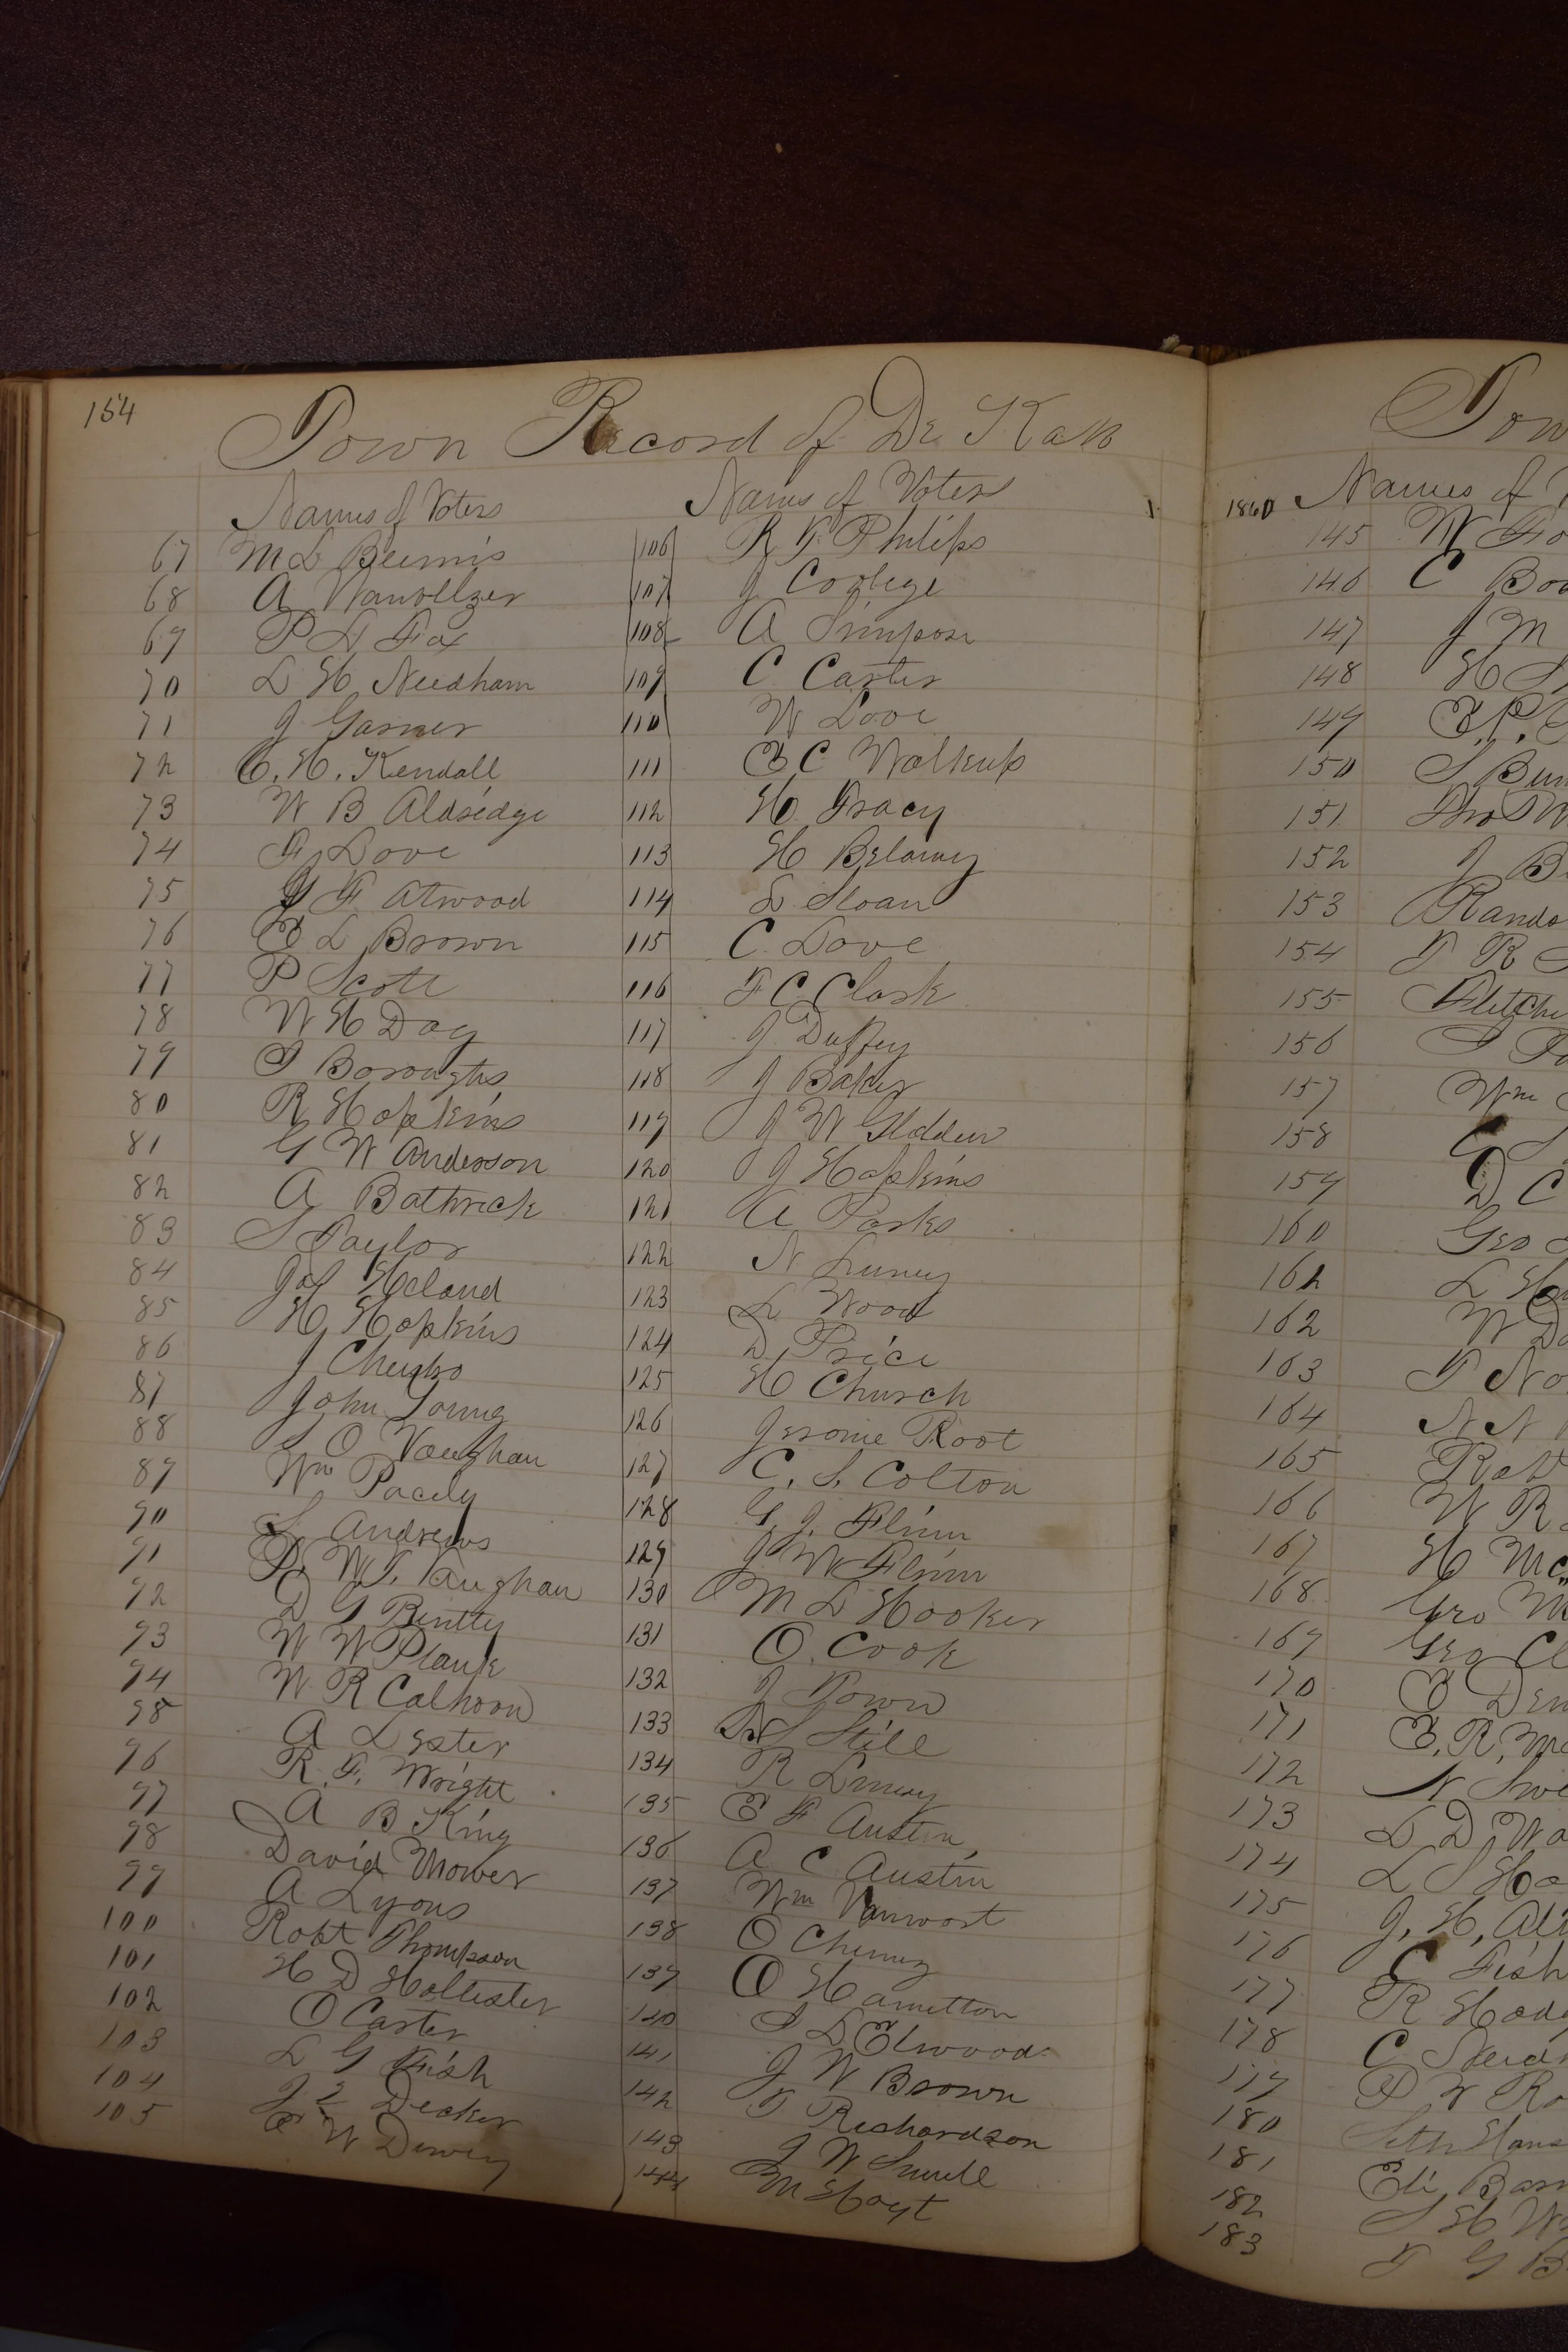 154
Town Record of De Kalb
Names of Voters
67 M L Bemis
68 A Vanvelzer
69 P L Fox
70 L H Needham
71 J Garner
72 C. H. Kendall
73 W B Aldredge
74 F Love
75 G F Atwood
76 E L Brown
77 P Scott
78 W H Day
79 I Boroughs
80 R Hopkins
81 G W Anderson
82 A Bathrick
83 S Taylor
84 Jas Heland
85 H Hopkins
86 J
87 John Young
88 S O Vaughan
89 Wm
90 S. Andrews
91 W. T. Vaughan
92 D G
93 W W Plank
94 W R Calhoon
95 A Lester
96 R. F. Wright
97 A B King
98 David Mower
99 A Lyons
100 Robt Thompson
101 H D Hollister
102 O Carter
103 L G Fish
104 J Decker
105 W Dewey
Names of Voters
106 R F Philips
107 J Cooley
108 A Simpson
109 C Carter
110 W Love
111 E C Walkup
112 H Tracy
113 H Belamy
114 L Sloan
115 C Love
116 F C Clark
117 J Duffey
118 J Baker
119 J W Glidden
120 J Hopkins
121 A Parks
122 N Luney
123 L Wood
124 D Price
125 H Church
126 Jerome Root
127 C. S. Colton
128 G. J. Flinn
129 J W Flinn
130 M L Hooker
131 O. Cook
132 J Town
133 S Still
134 R Luney
135 E F Austin
136 A C Austin
137 Wm Vanwort
138 O Cheney
139 O Hamilton
140 I L Elwood
141 J W Brown
142 T Richardson
143 J W
144 M Hoyt
Tow
1860 Names of
145 W Fo
146 C Bow
147 J M
148 H S
149 E. P.
150 S Bur
151 Thos W
152 J B
153 Rando
154 T R
155 Fletche
156 S
157 Wm
158 C S
159 D C
160 Geo
161 L H
162 W D
163 T No
164 N N
165 Rob
166 W R
167 H Mc
168 Geo M
169 Geo Cl
170 E Den
171 E. R. Mc
172 N Swe
173 L D Wa
174 L S Ho
175 J. H. Al
176 C Fish
177 R Hod
178 C
179 P W Ro
180 Seth Hans
181 Eli Bar
182 S H W
183 T G B